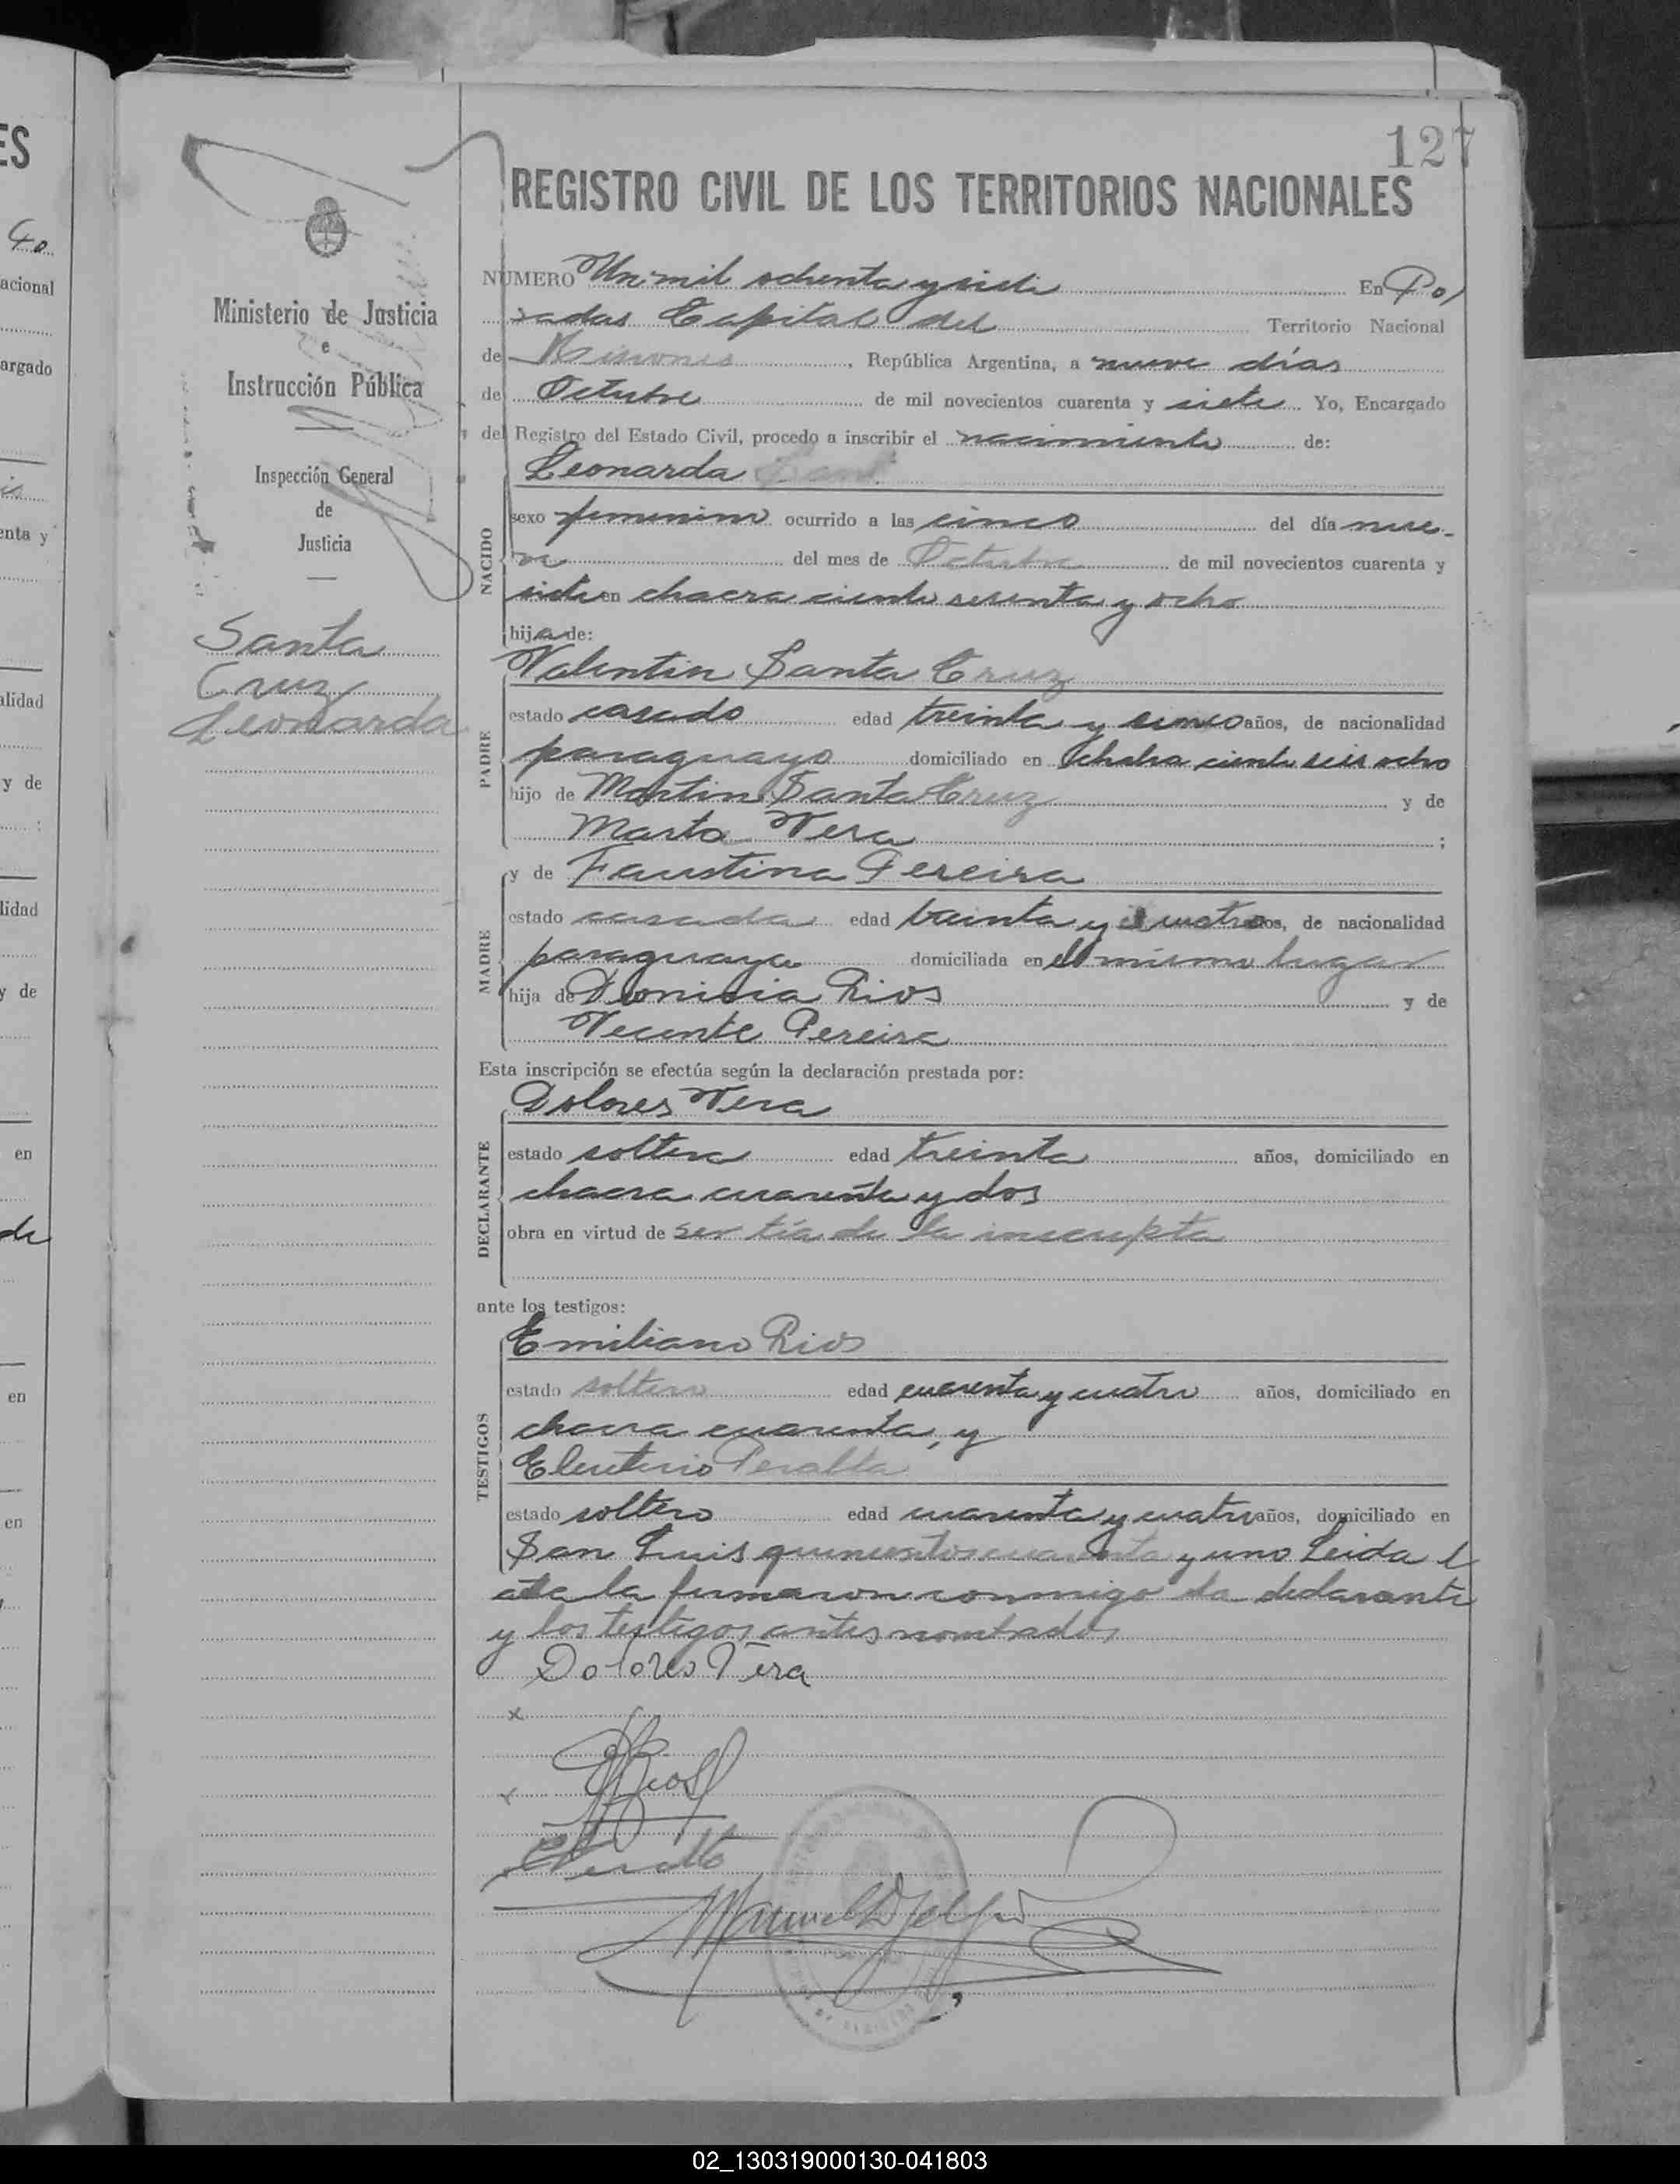 127
REGISTRO CIVIL DE LOS TERRITORIOS NACIONALES
Ministerio de Justicia
e
Instrucción Pública
Inspección General
de
Justicia
Santa
Cruz
Leonarda
NUMERO Un mil ochenta y siete En Po/
sadas Capital del Territorio Nacional
de Misiones, República Argentina, a nueve días
de Octubre de mil novecientos cuarenta y siete Yo, Encargado
del Registro del Estado Civil, procedo a inscribir el nacimiento de:
Leonarda
NACIDO
sexo femenino ocurrido a las cinco del día nue-
ve del mes de Octubre de mil novecientos cuarenta y
siete en chacra ciento sesenta y ocho
hija de:
PADRE
Valentin Santa Cruz
estado casado edad treinta y cinco años, de nacionalidad
paraguayo domiciliado en chakra ciento seis ocho
hijo de Martin Santa Cruz y de
Marta Vera ;
MADRE
y de Faustina Pereira
estado casada edad treinta y cuatro años, de nacionalidad
paraguaya domiciliada en el mismo lugar
hija de Dionisia Rios y de
Vecente Pereira
Esta inscripción se efectúa según la declaración prestada por:
DECLARANTE
Dolores Vera
estado soltera edad treinta años, domiciliado en
chacra cuarenta y dos
obra en virtud de ser tía de la inscripta
ante los testigos:
TESTIGOS
Emiliano Rios
estado soltero edad cuarenta y cuatro años, domiciliado en
chacra cuarenta, y
Eleuterio Peralta
estado soltero edad cuarenta y cuatro años, domiciliado en
San Luis quinientos cuarenta y uno Leida el
acta la firmaron conmigo la declarante
y los testigos antes nombrados
Dolores Vera
x
x
02_130319000130-041803